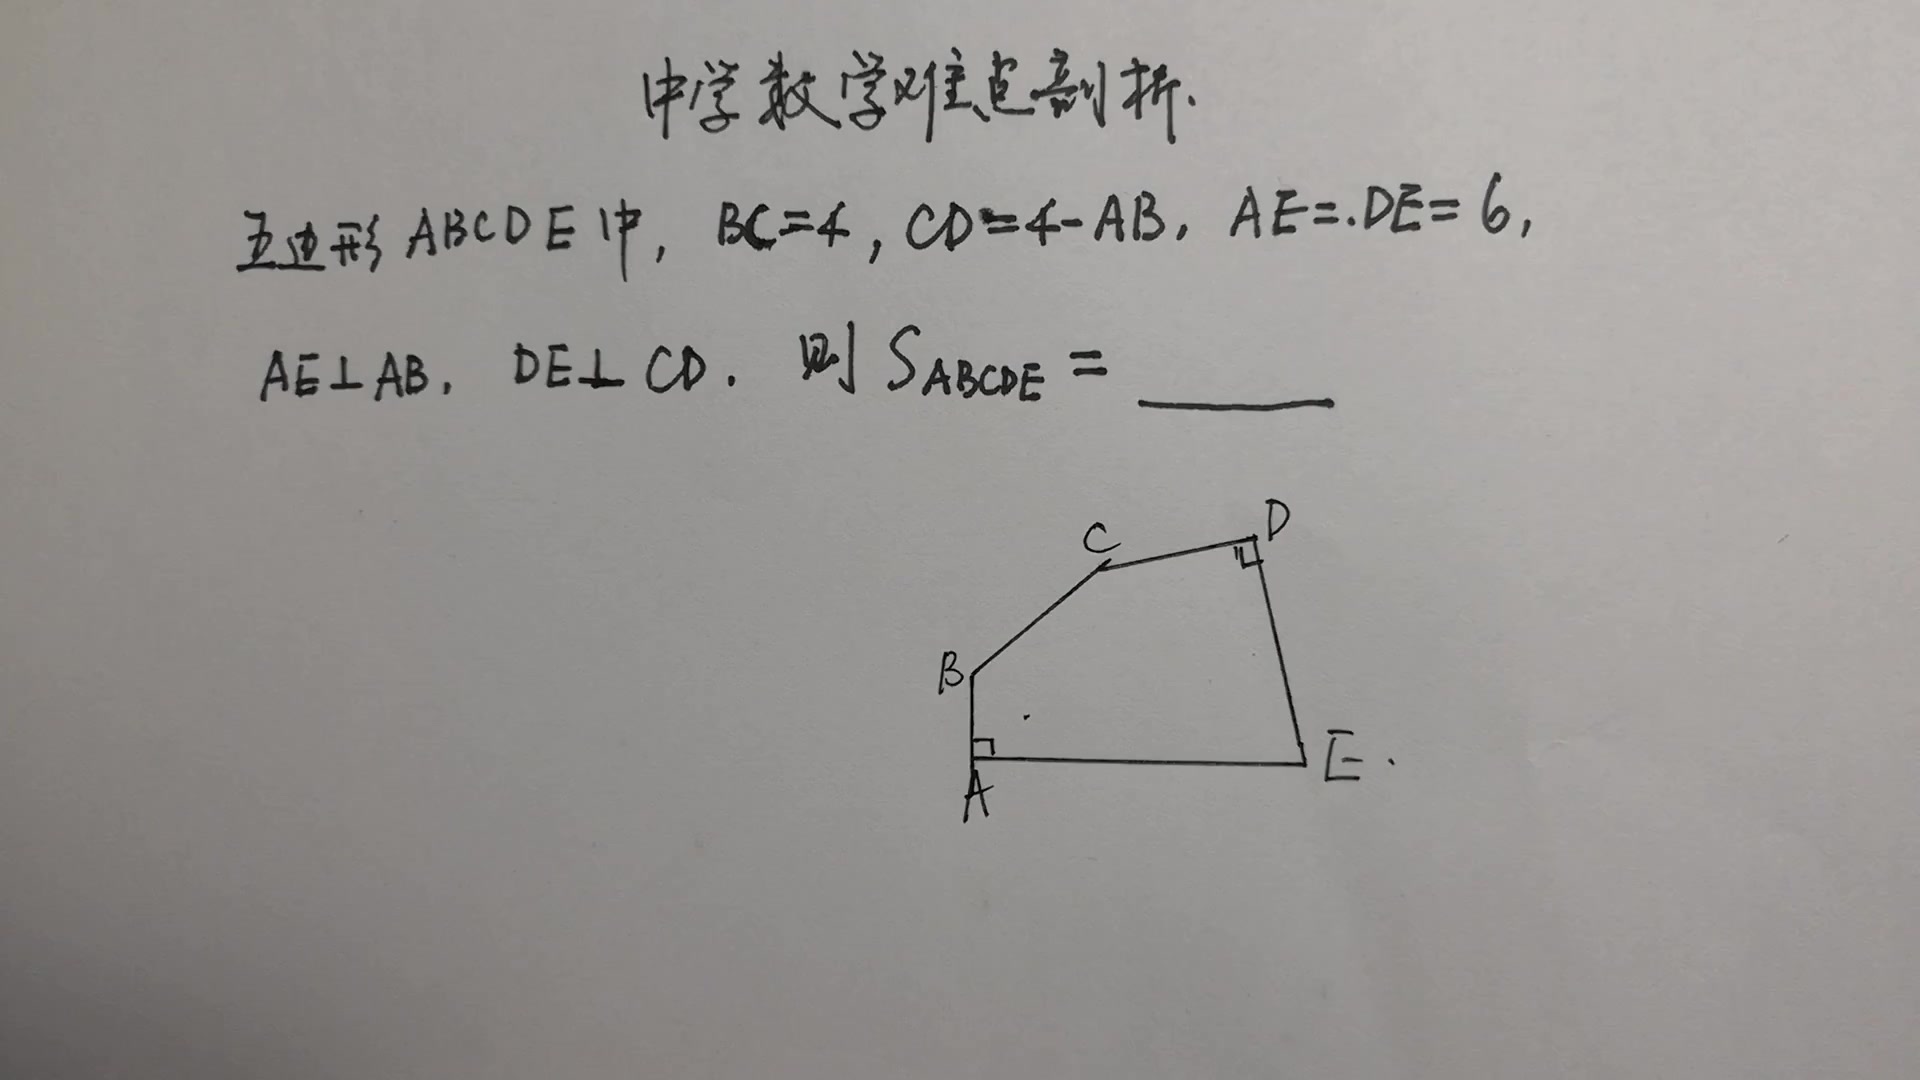 中学数学难点剖析.
五边形ABCDE中, BC=4, CD=4-AB, AE=.DE=6,
AE⊥AB, DE⊥CD. 则 S_ABCDE = ____
C
D
B
A
E.